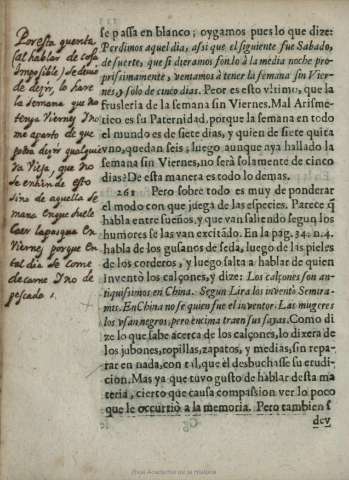 Por esta quenta
sal hablar de cosa
imposible, se deuio
de dezir, lo hare
la semana que no
tenga Viernes, y no
me aparto de que
pudo dezir qualquie
ra Vieja, que no
se entiende esto
sino de aquella se
mana en que suele
caer la pasqua en
Vierne, porque en
tal dia se come
de carne y no de
pescado
se passa en blanco; oygamos pues lo que dize:
Perdimos aquel dia, assi que el siguiente fue Sabado,
de suerte, que si dieramos fondo à la media noche pro-
prissimamente, veniamos à tener la semana sin Vier-
nes, y solo de cinco dias. Peor es esto vltimo, que la
frusleria de la semana sin Viernes. Mal Arismé-
tico es su Paternidad, porque la semana en todo
el mundo es de siete dias, y quien de siete quita
vno, quedan seis; luego aunque aya hallado la
semana sin Viernes, no será solamente de cinco
dias? De esta manera es todo lo demas.
261 Pero sobre todo es muy de ponderar
el modo con que juega de las especies. Parece q̃
habla entre sueños, y que van saliendo segun los
humores se las van excitãdo. En la pag. 34. n. 4.
habla de los gusanos de seda, luego de las pieles
de los corderos, y luego salta a hablar de quien
inventò los calçones, y dize: Los calçones son an-
tiquissimos en China. Segun Lira los inventò Semira-
mis. En China no se quien fue el inventor. Las mugeres
los vsan negros, pero encima traen sus sayas. Como di
ze lo que sabe acerca de los calçones, lo dixera de
los jubones, ropillas, zapatos, y medias, sin repa-
rar en nada, con tal, que el desbuchasse su erudi-
cion. Mas ya que tuvo gusto de hablar desta ma
teria, cierto que causa compassion ver lo poco
que le occurriò a la memoria. Pero tambien s
dev
Real Academia de la Historia